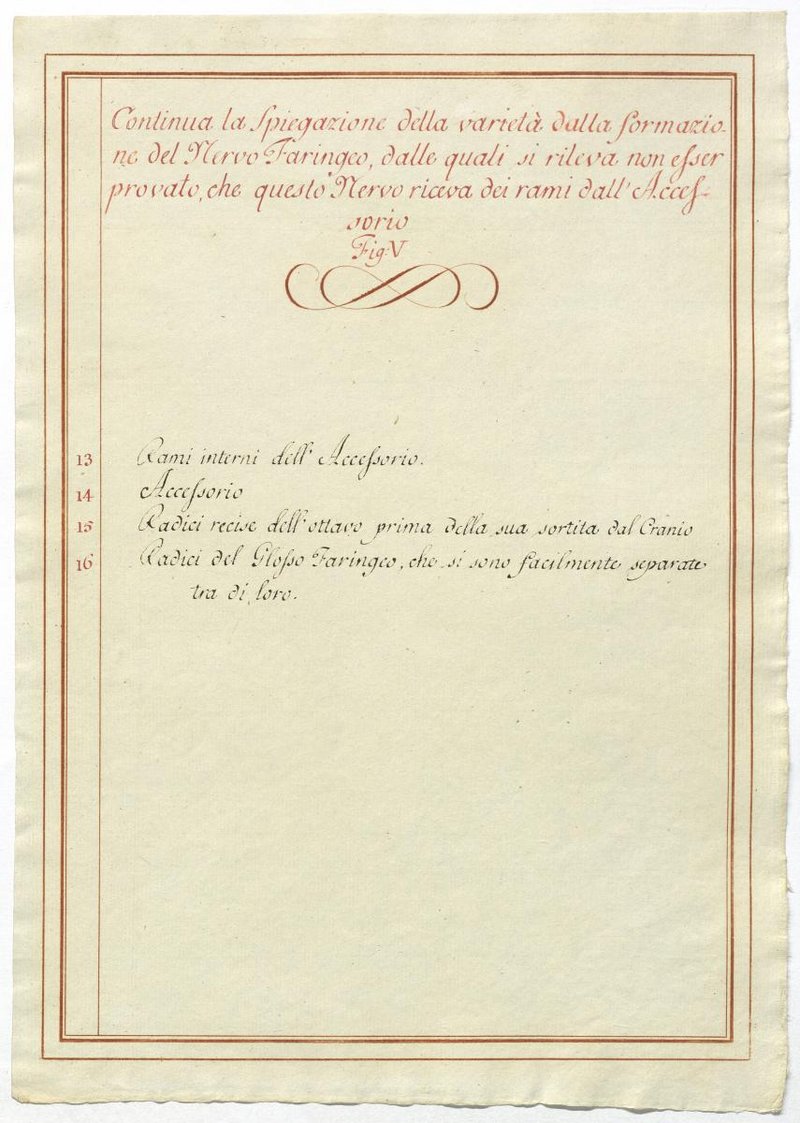 Continua la Spiegazione della varietà dalla formazio-
ne del Nervo Faringeo, dalle quali si rileva non esser
provato, che questo Nervo riceva dei rami dall'Acces-
sorio
Fig: V
13 Rami interni dell'Accessorio.
14 Accessorio
15 Radici recise dell'ottavo prima della sua sortita dal Cranio
16 Radici del Glosso Faringeo, che si sono facilmente separate
tra di loro.